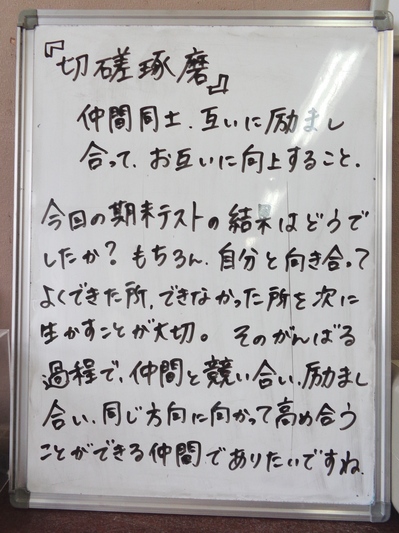 『切磋琢磨』
仲間同士、互いに励まし
合って、お互いに向上すること。
今回の期末テストの結果はどうで
したか？もちろん、自分と向き合って
よくできた所、できなかった所を次に
生かすことが大切。そのがんばる
過程で、仲間と競い合い、励まし
合い、同じ方向に向かって高め合う
ことができる仲間でありたいですね。